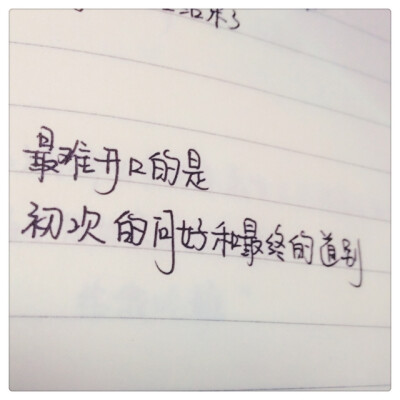 最难开口的是
初次的问好和最终的道别